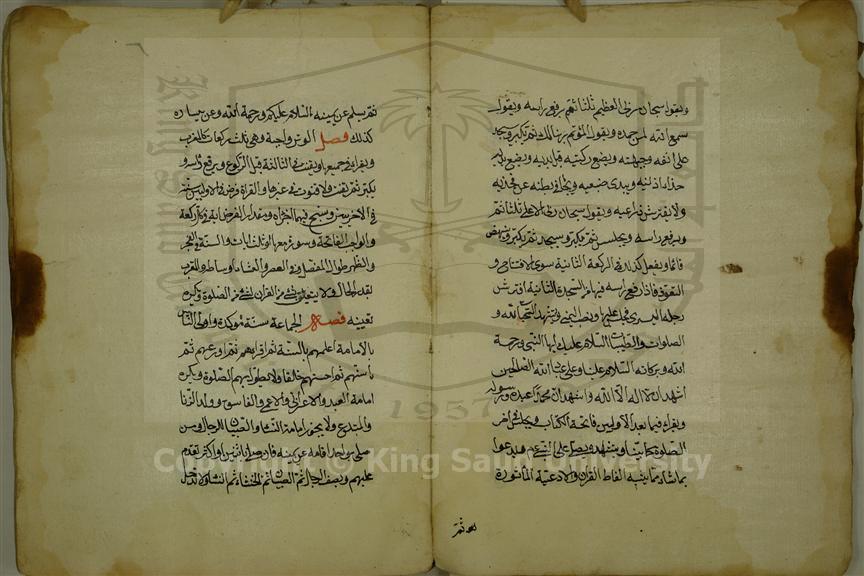 ويقول سبحان ربي العظيم ثلثا ثم يرفع راسه ويقول
سمع الله لمن حمده ويقول المؤتم ربنا لك ثم يكبر ويسجد
على انفه وجبهته ويضع ركبتيه قبل يديه ويضع يديه
حذاء اذنيه ويبدي ضبعيه ويجافي بطنه عن فخذيه
ولا يفترش ذراعيه ويقول سبحان ربي الاعلى ثلثا ثم
ويرفع راسه ويجلس ثم يكبر ويسجد ثم يكبر وينهض
قائما ويفعل كذلك في الركعة الثانية سوى الافتتاح و
التعوذ فاذا رفع راسه فيها من السجدة الثانية افترش
رجله اليسرى فجلس عليها ونصب اليمنى ويتشهد التحيات لله و
الصلوات والطيبات السلام عليك ايها النبي ورحمة
الله وبركاته السلام علينا وعلى عباد الله الصالحين
اشهد ان لا اله الا الله واشهد ان محمدا عبده ورسوله
ويقراء فيما بعد الاوليين فاتحة الكتاب ويجلس في اخر
الصلوة كما بينا ويتشهد ويصلي على النبي عم ويدعوا
بما شاء مما يشبه الفاظ القران والادعية المأثورة
ثم
ثم يسلم عن يمينه السلام عليكم ورحمة الله وعن يساره
كذلك فصل الوتر واجبة وهي ثلث ركعات كالمغرب
ويقراء في جميعها ويقنت في الثالثة قبل الركوع ويرفع و
يكبر ثم يقنت ولا قنوت في غيرها والقراة فرض في الاوليين سنة
في الاخريين وسبح فيهما اجزاه ومقدار الفرض اية في كل ركعة
والواجب الفاتحة وسورة معها او ثلث ايات والسنة في الفجر
والظهر طوال المفصل وفي العصر والعشاء اوساطه والمغرب
لقدر الحال ولا يتعين شئ من القران لشئ من الصلوة ويكره
تعيينه فصل الجماعة سنة مؤكدة واولى الناس
بالامامة اعلمهم بالسنة ثم اقراهم ثم اورعهم ثم
اسنهم ثم احسنهم خلقا ولا يطول بهم الصلوة ويكره
امامة العبد والاعرابي والاعمى والفاسق وولد الزنا
والمبتدع ولا يجوز امامة النساء والصبيان للرجال ومن
صلى بواحد اقامه عن يمينه فان صلى باثنين او اكثر تقدم
عليهم ويصف الرجال ثم الصبيان ثم الخنثاء ثم النساء ولا تدخل
1957
Copyright © King Saud University